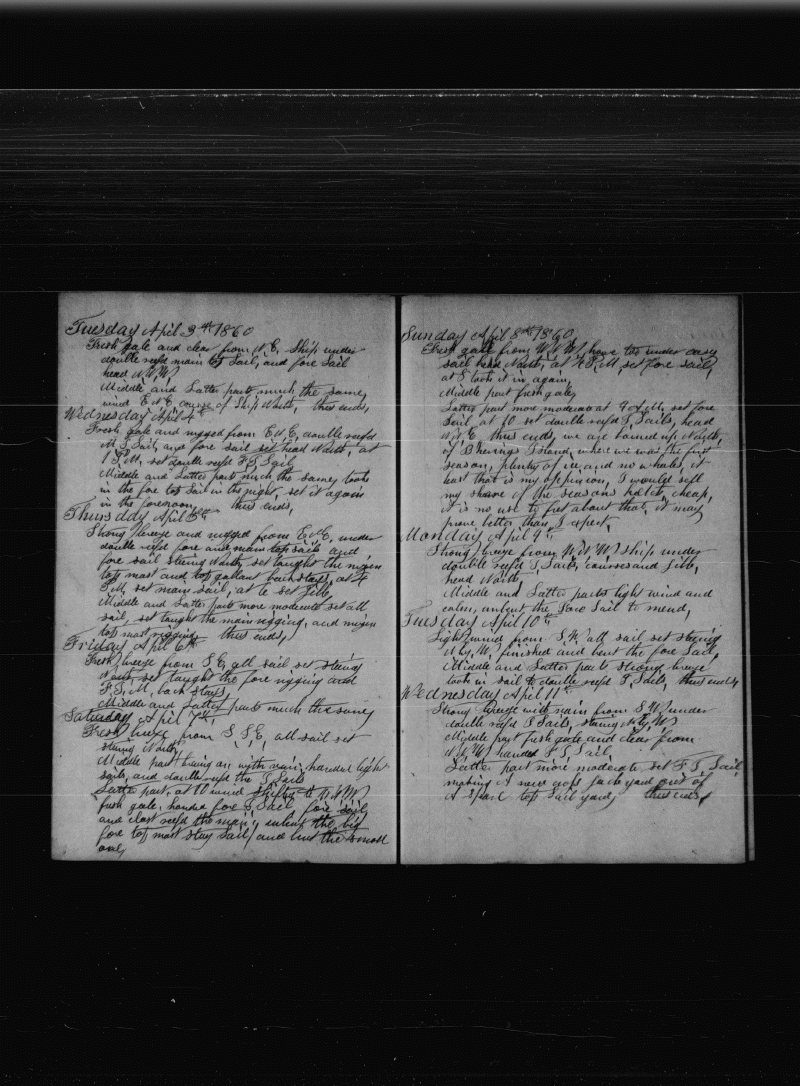 Tuesday April 3rd 1860
Fresh gale and clear from N.E. Ship under
double reefd main top Sail, and fore Sail
head N.W.
Middle and Latter parts much the same
wind E N E course of Ship North, thus ends,
Wednesday April 4th
Fresh gale and rugged from E N E, double reefd
M T Sail, and fore sail set head North, at
1 P.M. set double reefd F T Sail
Middle and Latter part much the same, took
in the fore top Sail in the night, set it again
in the forenoon, thus ends,
Thursday April 5th
Strong breeze and rugged from E N E, under
double reefd fore and main top sails and
fore sail stering North, set taught the mizen
top mast and top gallant backstays, at 4
P.M. set main sail, at 6 set jibb,
Middle and Latter parts more moderate set all
sail, set taught the main rigging, and mizen
top mast rigging thus ends,
Friday April 6th
Fresh breeze from S.E. all sail set stering
North, set taught the fore rigging and
F.T.M. back stays,
Middle and Latter parts much the same,
Saturday April 7th
Fresh breeze from S S E, all sail set
stering North,
Middle part breezing on with rain, handed light
sails, and double reefd the T Sails
Latter part, at 10 wind shifted to N.N.W
fresh gale, handed fore T Sail, fore sail,
and close reefd the main, unbent the big
fore top mast stay sail, and bent the small
one,
Sunday April 8th 1860
Fresh gale from W N W, hove too under easy
sail head North, at 4 P.M. set fore sail,
at 8 took it in again,
Middle part fresh gale,
Latter part more moderate at 9 A.M. set fore
Sail, at 10 set double reefd T Sails, head
N N E thus ends, we are turned up North,
of Bherings Island, where we was the first
season, plenty of ice and no whales, at
least that is my oppinion, I would sell
my share of the seasons ketch, cheap,
it is no use to fret about that, it may
prove better than I expect,
Monday April 9th
Strong breeze from W N W, ship under
double reefd T Sails, courses and jibb,
head North,
Middle and Latter parts light wind and
calm, unbent the Fore Sail to mend,
Tuesday April 10th
Light wind from S.W. all sail set stering
N by W, finished and bent the fore Sail,
Middle and Latter parts strong breeze
took in sail to double reefd T Sails, thus ends,
Wednesday April 11th
Strong breeze with rain from S W, under
double reefd T Sails, stering N by W
Middle part fresh gale and clear from
N W, handed F T Sail,
Latter part more moderate set F T Sail,
making A new yard out of
A Spare top sail yard, thus ends,